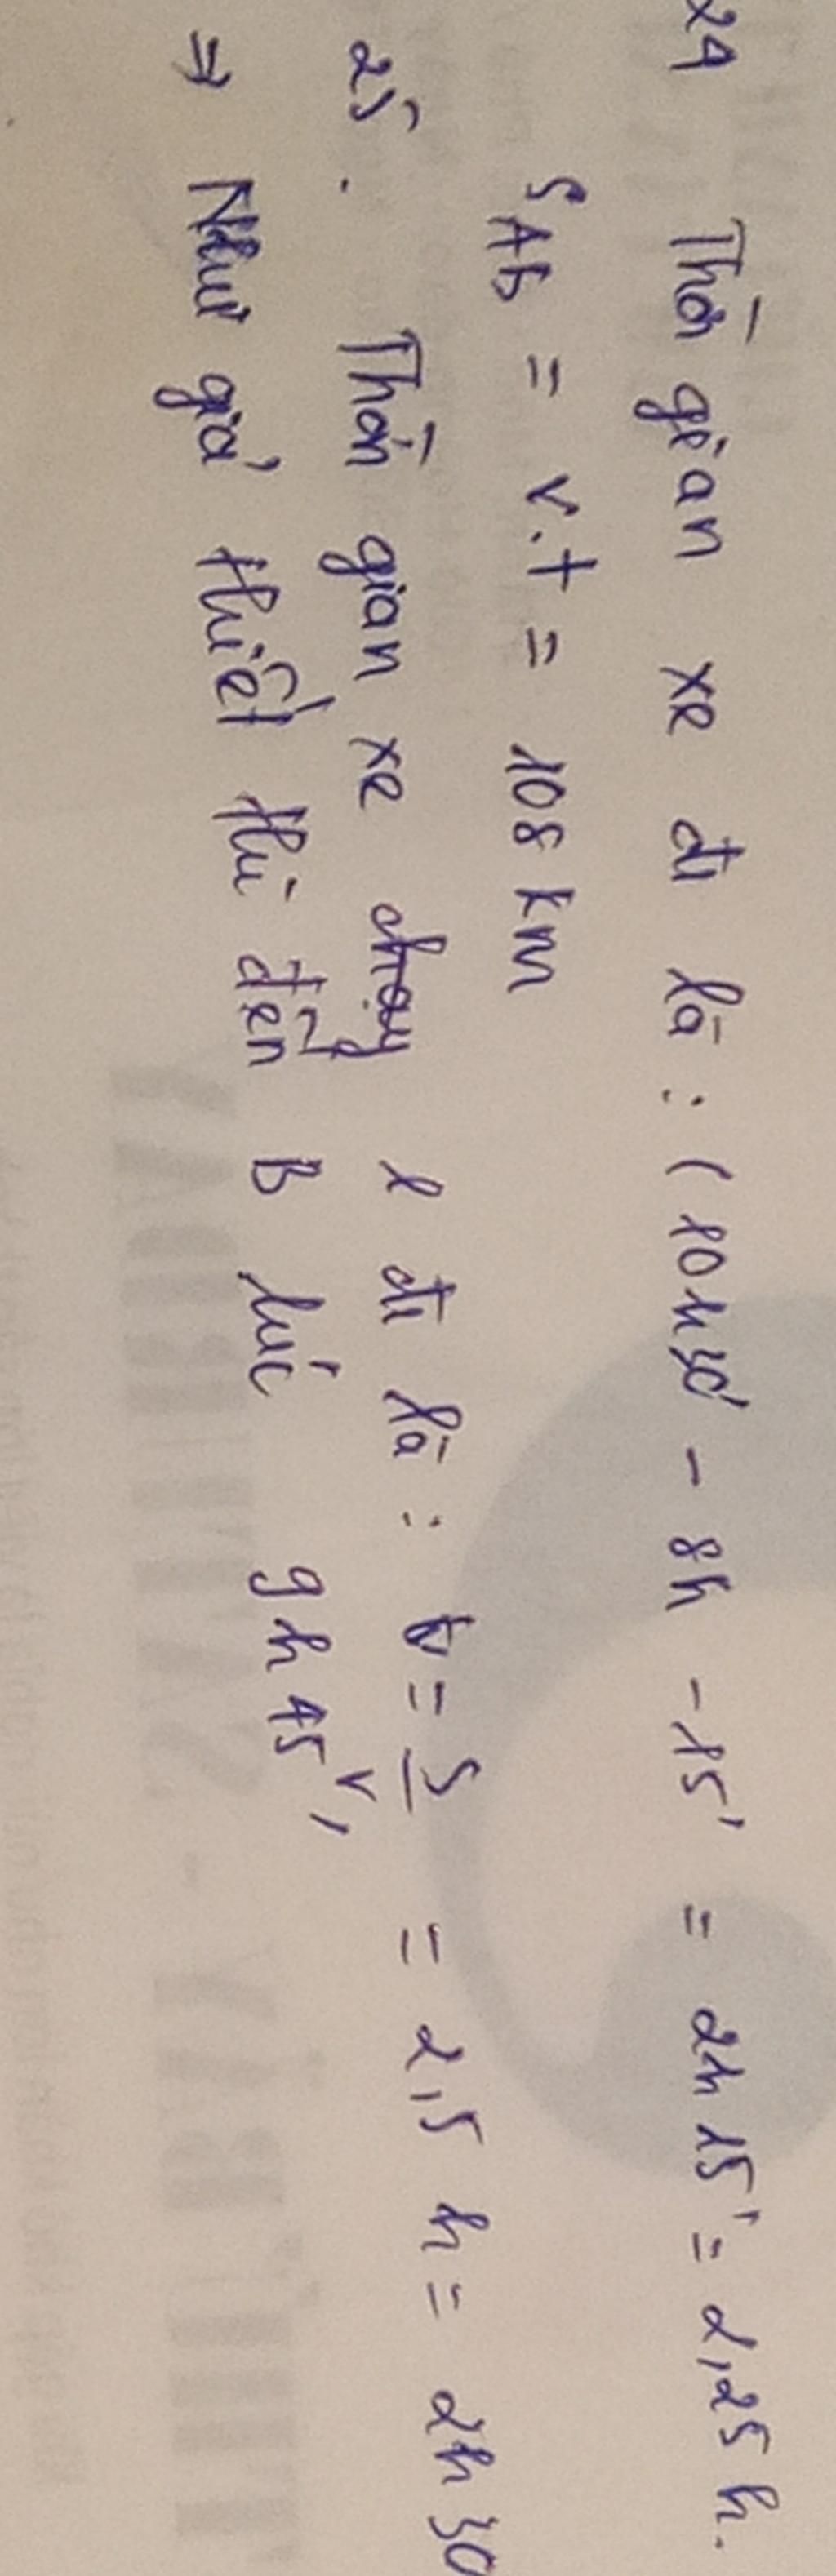 24 Thời gian xe đi là : ( 10h30' - 8h - 15' = 2h 15' = 2,25 h.
SAB = v.t = 108 km
25. Thời gian xe chạy đi là : t = S/v = 2,5 h = 2h 30
=> Như giả thiết thì đến B lúc 9h45',